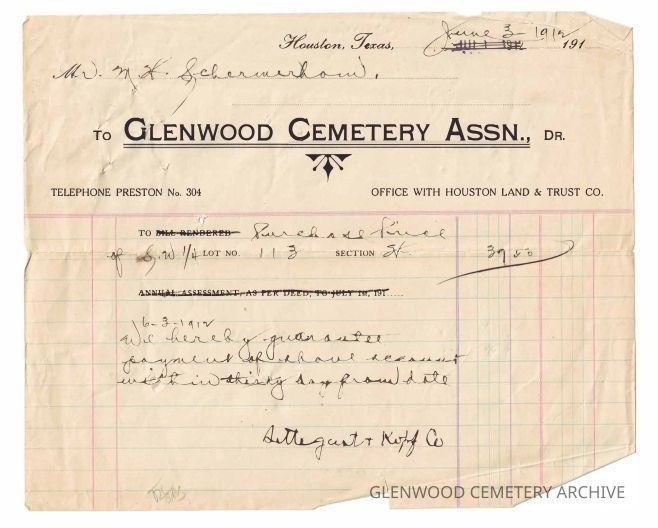 Houston, Texas, June 3- 1912 191
Mr. M. H. Schermerhorn.
TO GLENWOOD CEMETERY ASSN., DR.
TELEPHONE PRESTON No. 304 OFFICE WITH HOUSTON LAND & TRUST CO.
TO BILL RENDERED Purchase Price
of S.W 1/4 LOT NO. 113 SECTION H. 37 50
ANNUAL ASSESSMENT, AS PER DEED, TO JULY 1st, 191
6-3-1912
We hereby guarantee
payment of above account
within thirty day from date
Settegast & Kopf Co
GLENWOOD CEMETERY ARCHIVE